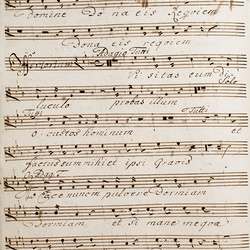 Domine Dona eis Requiem
Dona eis requiem
Versus Adagio Tutti
Visitas eum Di Solo
luculo probas illum
Tutti Tutti
o custos hominum et
factus sum mihi et ipsi Gravis
Ecce nunc pulvere Dormiam
Dormiam et si mane me qua